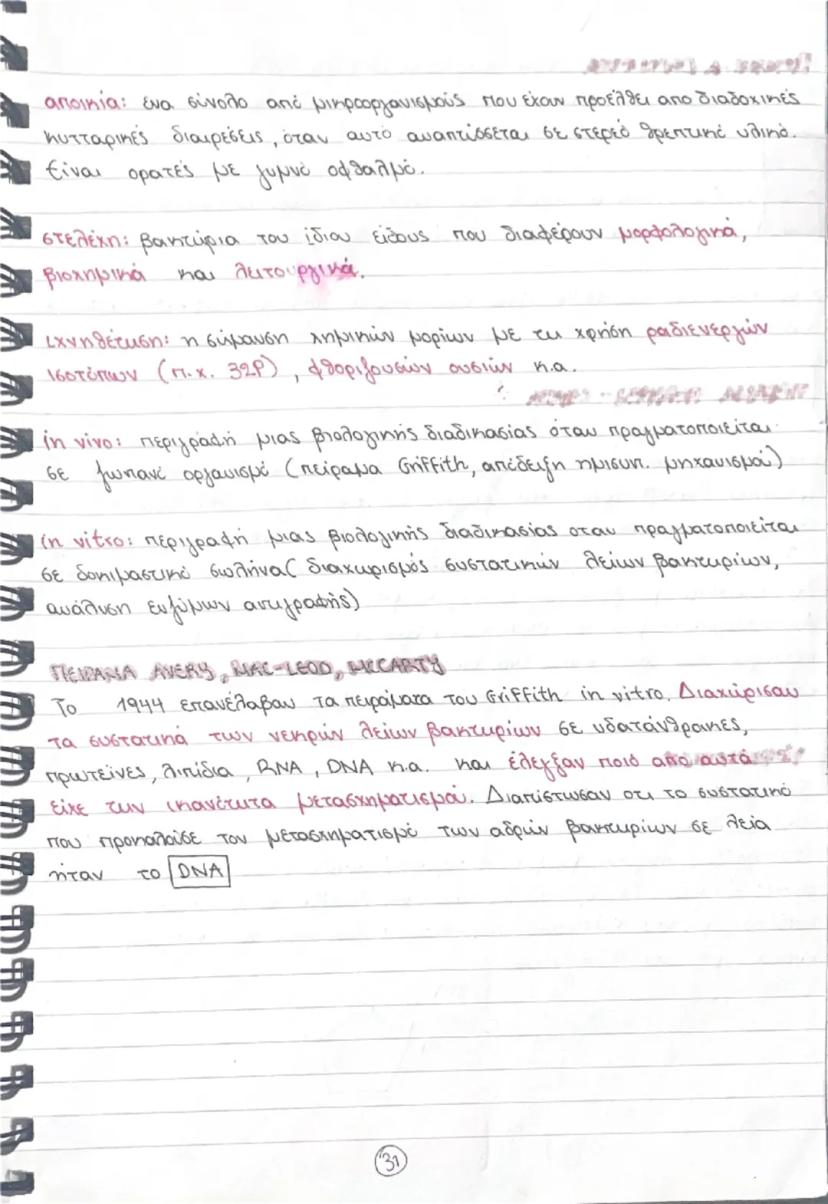 αποικία: ένα σύνολο από μικροοργανισμούς που έχουν προέλθει από διαδοχικές
κυτταρικές διαιρέσεις, όταν αυτό αναπτύσσεται σε στερεό θρεπτικό υλικό.
Είναι ορατές με γυμνό οφθαλμό.
στελέχη: βακτήρια του ίδιου είδους που διαφέρουν μορφολογικά,
βιοχημικά και λειτουργικά.
ιχνηθέτηση: η σήμανση χημικών μορίων με τη χρήση ραδιενεργών
ισοτόπων (π.χ. 32P), φθοριζουσών ουσιών κ.α.
in vivo: περιγραφή μιας βιολογικής διαδικασίας όταν πραγματοποιείται
σε ζωντανό οργανισμό (πείραμα Griffith, απόδειξη ημισυν. μηχανισμού)
in vitro: περιγραφή μιας βιολογικής διαδικασίας όταν πραγματοποιείται
σε δοκιμαστικό σωλήνα( διαχωρισμός συστατικών λείων βακτηρίων,
ανάλυση ενζύμων αντιγραφής)
ΠΕΙΡΑΜΑ AVERY, MAC-LEOD, MCCARTY
Το 1944 επανέλαβαν τα πειράματα του Griffith in vitro. Διαχώρισαν
τα συστατικά των νεκρών λείων βακτηρίων σε υδατάνθρακες,
πρωτεΐνες, λιπίδια, RNA, DNA κ.α. και έλεγξαν ποιό από αυτά
είχε την ικανότητα μετασχηματισμού. Διαπίστωσαν ότι το συστατικό
που προκαλούσε τον μετασχηματισμό των αδρών βακτηρίων σε λεία
ήταν το DNA
31